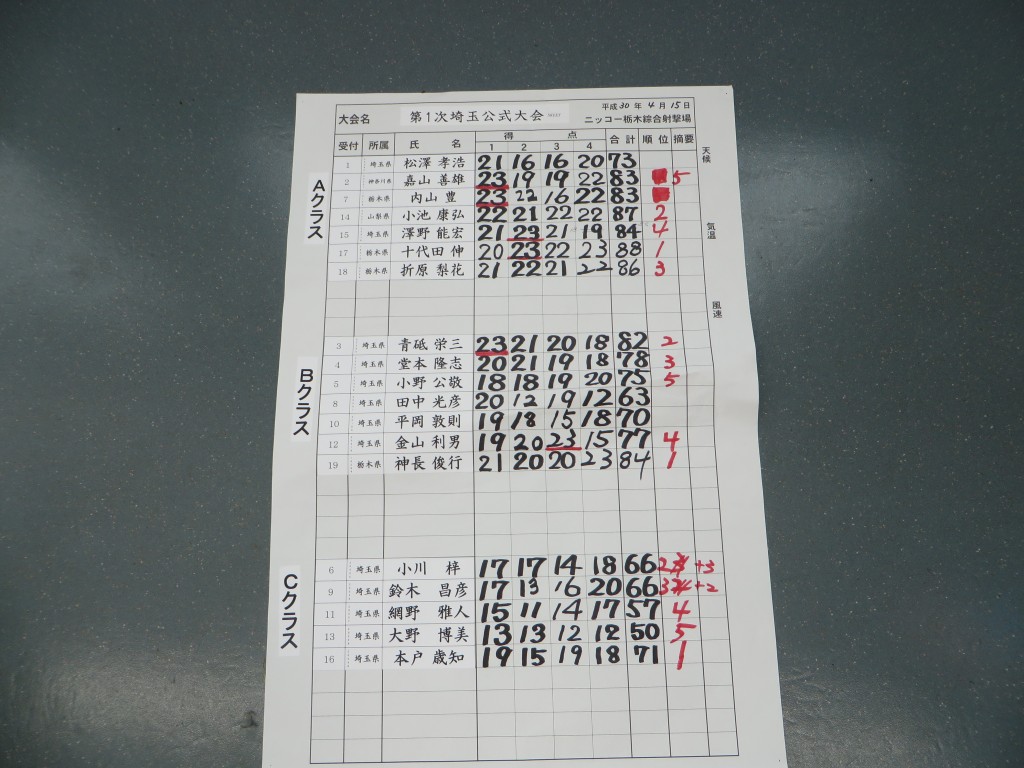 大会名 第1次埼玉公式大会 平成30年4月15日
ニッコー栃木綜合射撃場
受付 所属 氏名 得点 合計 順位 摘要
1 2 3 4
天候
気温
風速
Aクラス
1 埼玉県 松澤 孝浩 21 16 16 20 73
2 神奈川県 嘉山 善雄 23 19 19 22 83 5
7 栃木県 内山 豊 23 22 16 22 83
14 山梨県 小池 康弘 22 21 22 22 87 2
15 埼玉県 澤野 能宏 21 23 21 19 84 4
17 栃木県 十代田 伸 20 23 22 23 88 1
18 栃木県 折原 梨花 21 22 21 22 86 3
Bクラス
3 埼玉県 青砥 栄三 23 21 20 18 82 2
4 埼玉県 堂本 隆志 20 21 19 18 78 3
5 埼玉県 小野 公敬 18 18 19 20 75 5
8 埼玉県 田中 光彦 20 12 19 12 63
10 埼玉県 平岡 敦則 19 18 15 18 70
12 埼玉県 金山 利男 19 20 23 15 77 4
19 栃木県 神長 俊行 21 20 20 23 84 1
Cクラス
6 埼玉県 小川 梓 17 17 14 18 66 2 +3
9 埼玉県 鈴木 昌彦 17 13 16 20 66 3 +2
11 埼玉県 網野 雅人 15 11 14 17 57 4
13 埼玉県 大野 博美 13 13 12 12 50 5
16 埼玉県 本戸 歳知 19 15 19 18 71 1